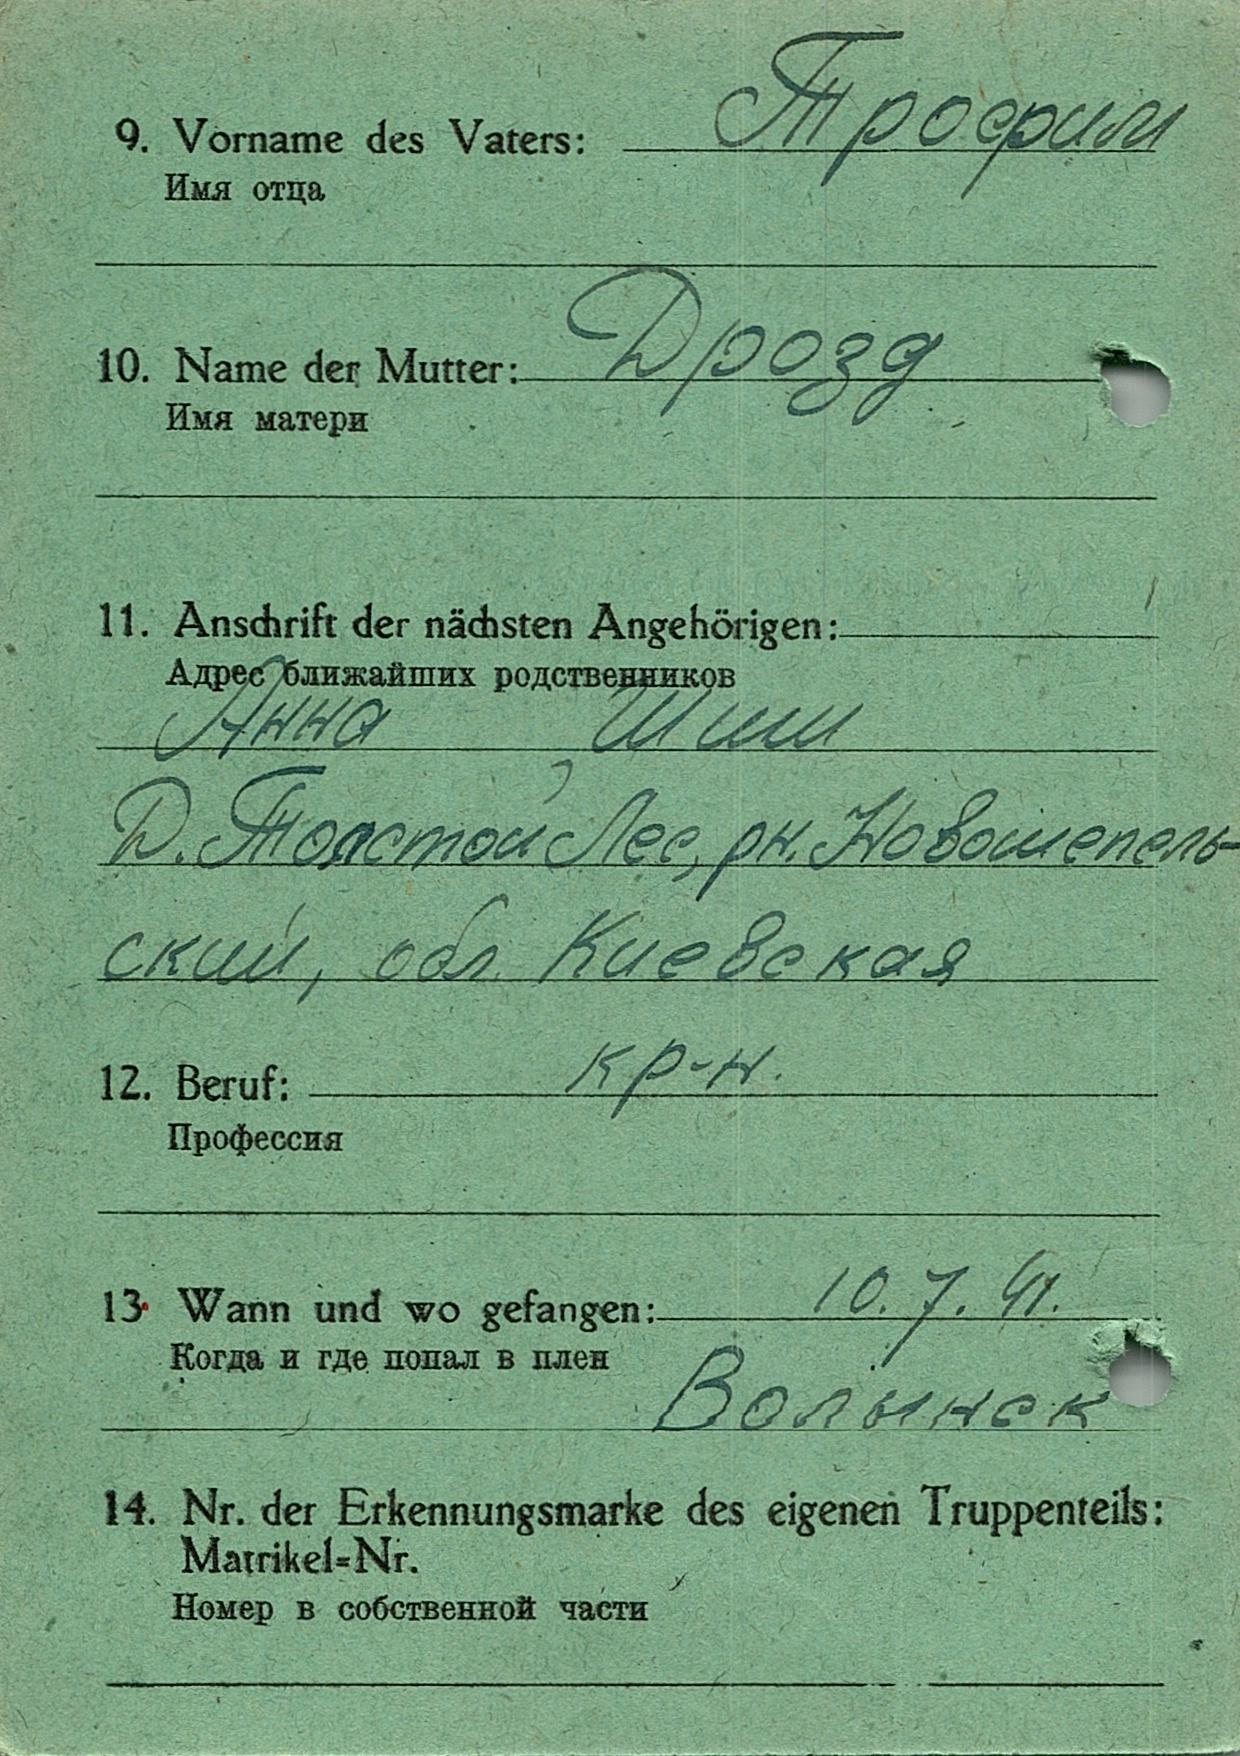 9. Vorname des Vaters: Трофим
Имя отца
10. Name der Mutter: Дрозд
Имя матери
11. Anschrift der nächsten Angehörigen:
Адрес ближайших родственников
Анна Шиш
Д. Толстой Лес, рн. Новошепель-
ский, обл. Киевская
12. Beruf: кр-н.
Профессия
13. Wann und wo gefangen: 10.7.41.
Когда и где попал в плен
Волынск
14. Nr. der Erkennungsmarke des eigenen Truppenteils:
Matrikel=Nr.
Номер в собственной части